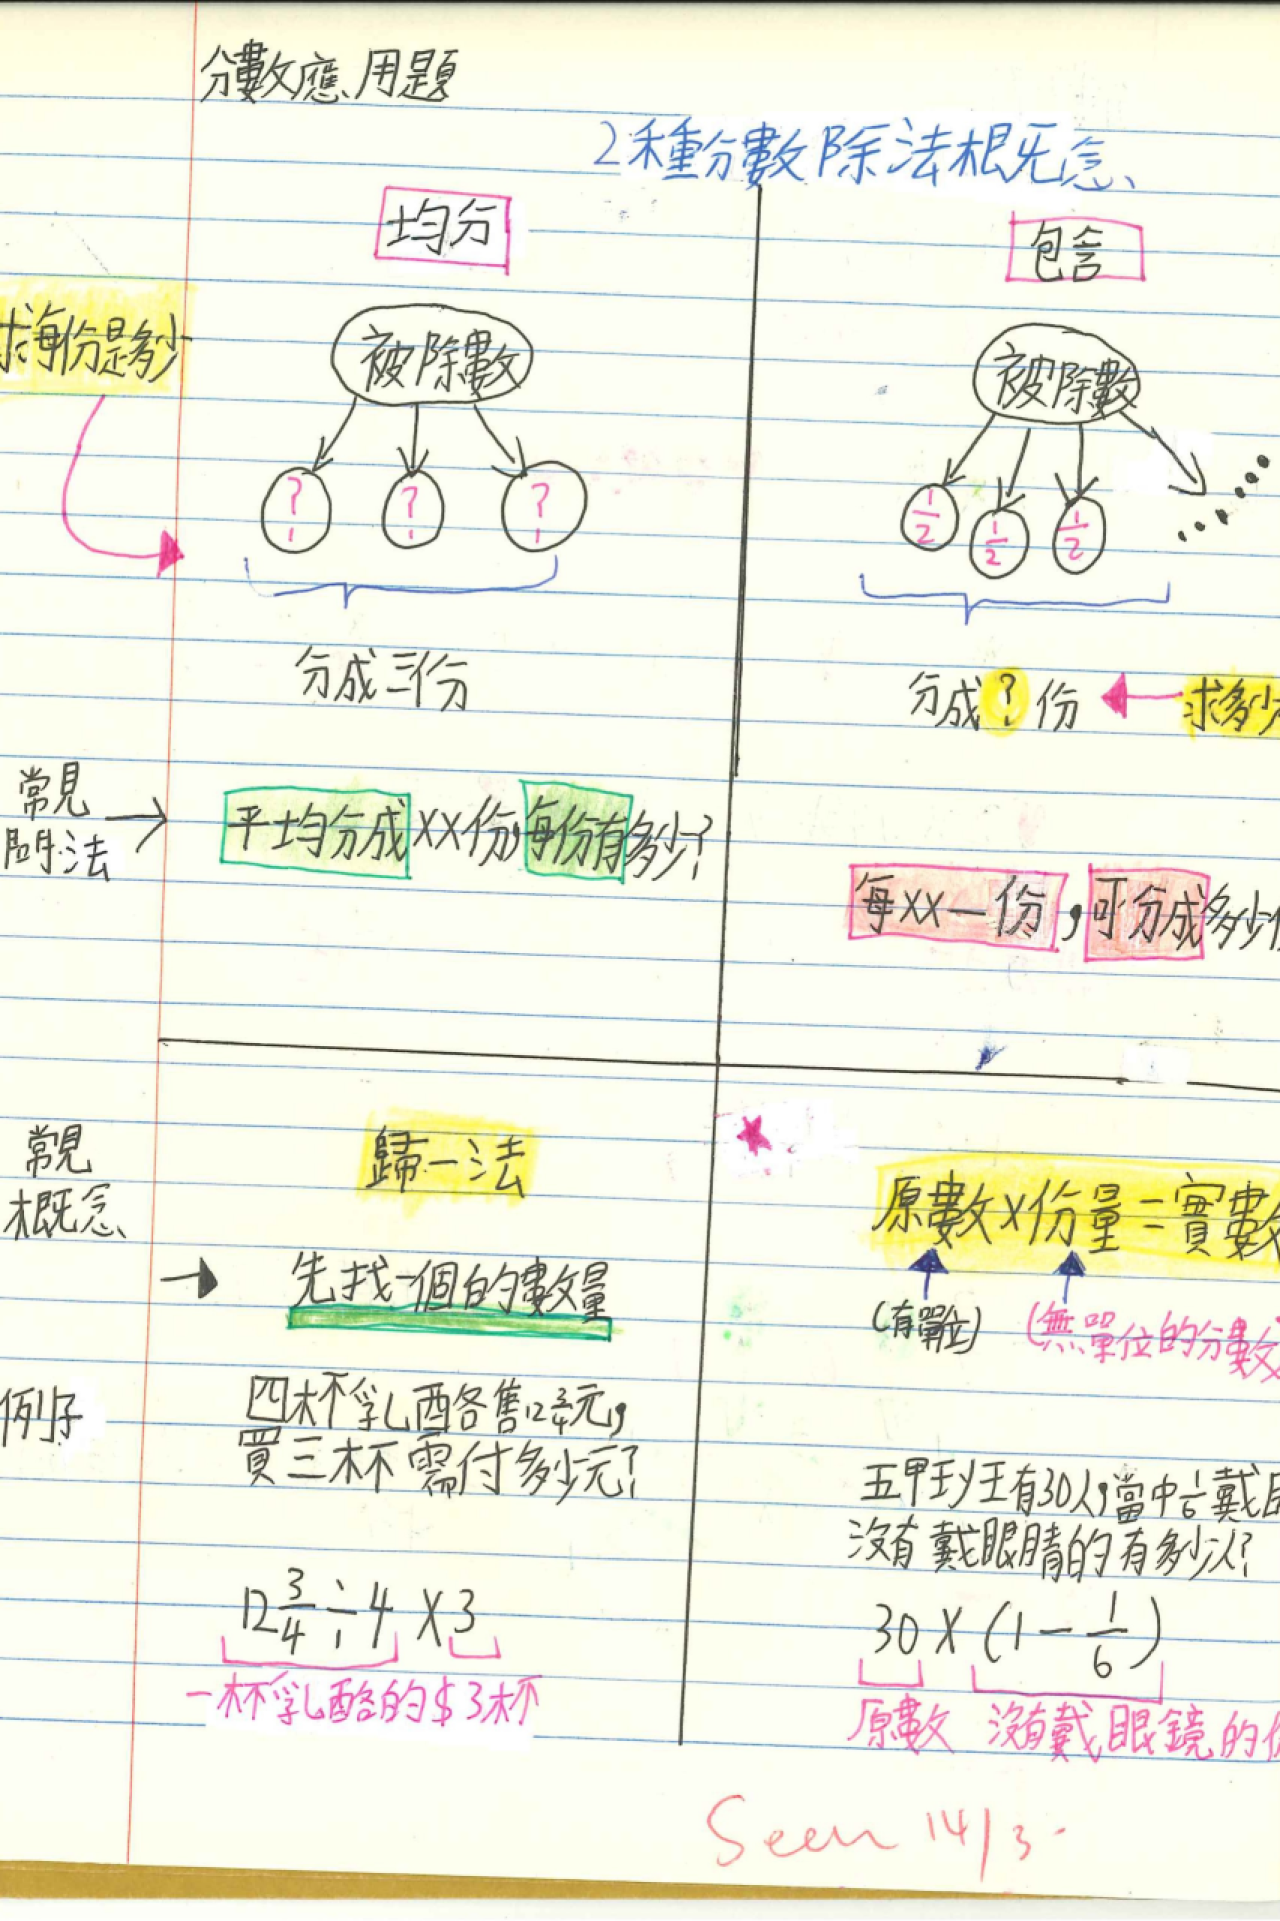 分數應用題
2種分數除法概念
均分
包含
求每份是多少
被除數
被除數
? ? ?
1/2 1/2 1/2 ......
分成三份
分成?份
求多少
常見
問法
平均分成XX份,每份有多少?
每XX一份,可分成多少
常見
概念
歸一法
先找一個的數量
原數×份量=實數
(有單位)
(無單位的分數
例子
四杯乳酪各售12 3/4元,
買三杯需付多少元?
五甲班王有30人,當中1/6戴
沒有戴眼睛的有多少人?
12 3/4 ÷ 4 × 3
一杯乳酪的$ 3杯
30 × (1 - 1/6)
原數 沒有戴眼鏡的
Seen 14/3.